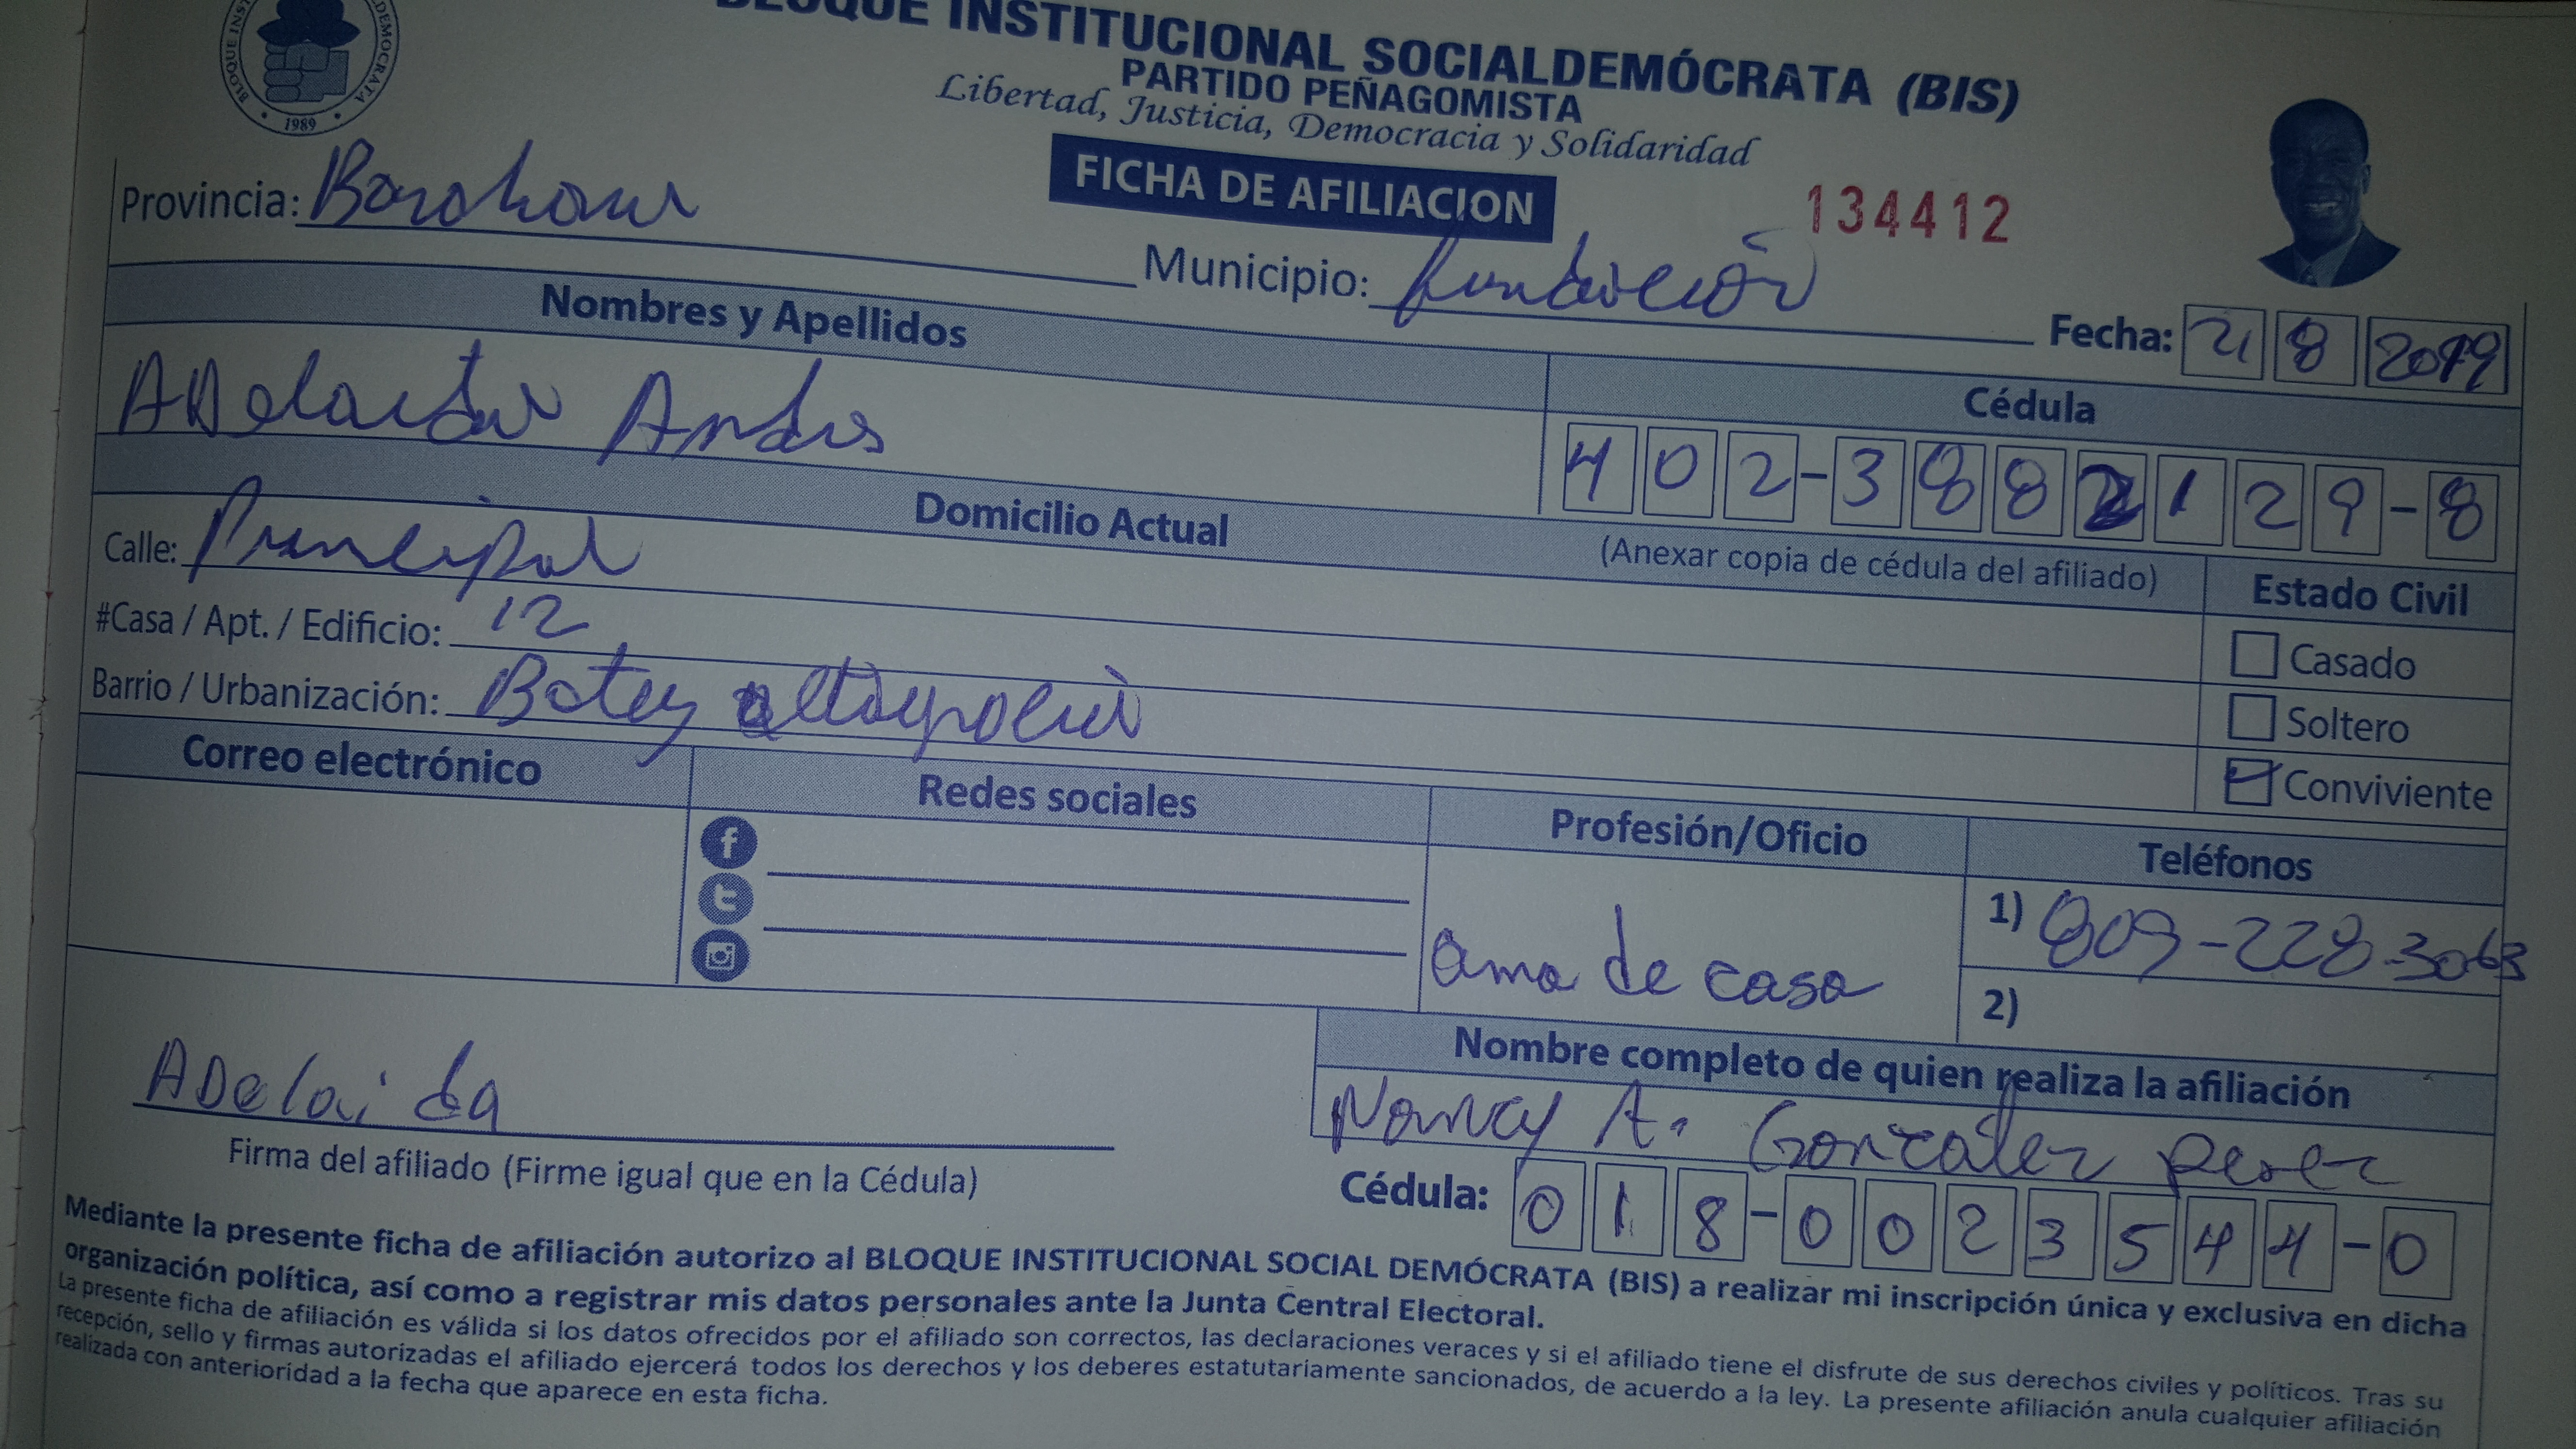 BLOQUE INSTITUCIONAL SOCIALDEMÓCRATA (BIS)
PARTIDO PEÑAGOMISTA
Libertad, Justicia, Democracia y Solidaridad
1989
FICHA DE AFILIACION
134412
Provincia: Barahona
Municipio: fundación
Fecha: 21 8 2019
Nombres y Apellidos
Cédula
ADelaida Andres
402-3882129-8
Domicilio Actual
(Anexar copia de cédula del afiliado)
Calle: Principal
Estado Civil
#Casa / Apt. / Edificio: 12
Casado
Barrio / Urbanización: Batey altagracia
Soltero
Conviviente
Correo electrónico
Redes sociales
Profesión/Oficio
Teléfonos
1) 809-228-3063
ama de casa
2)
Nombre completo de quien realiza la afiliación
ADelaida
Nancy A. González perez
Firma del afiliado (Firme igual que en la Cédula)
Cédula: 018-0023544-0
Mediante la presente ficha de afiliación autorizo al BLOQUE INSTITUCIONAL SOCIAL DEMÓCRATA (BIS) a realizar mi inscripción única y exclusiva en dicha
organización política, así como a registrar mis datos personales ante la Junta Central Electoral.
La presente ficha de afiliación es válida si los datos ofrecidos por el afiliado son correctos, las declaraciones veraces y si el afiliado tiene el disfrute de sus derechos civiles y políticos. Tras su
recepción, sello y firmas autorizadas el afiliado ejercerá todos los derechos y los deberes estatutariamente sancionados, de acuerdo a la ley. La presente afiliación anula cualquier afiliación
realizada con anterioridad a la fecha que aparece en esta ficha.